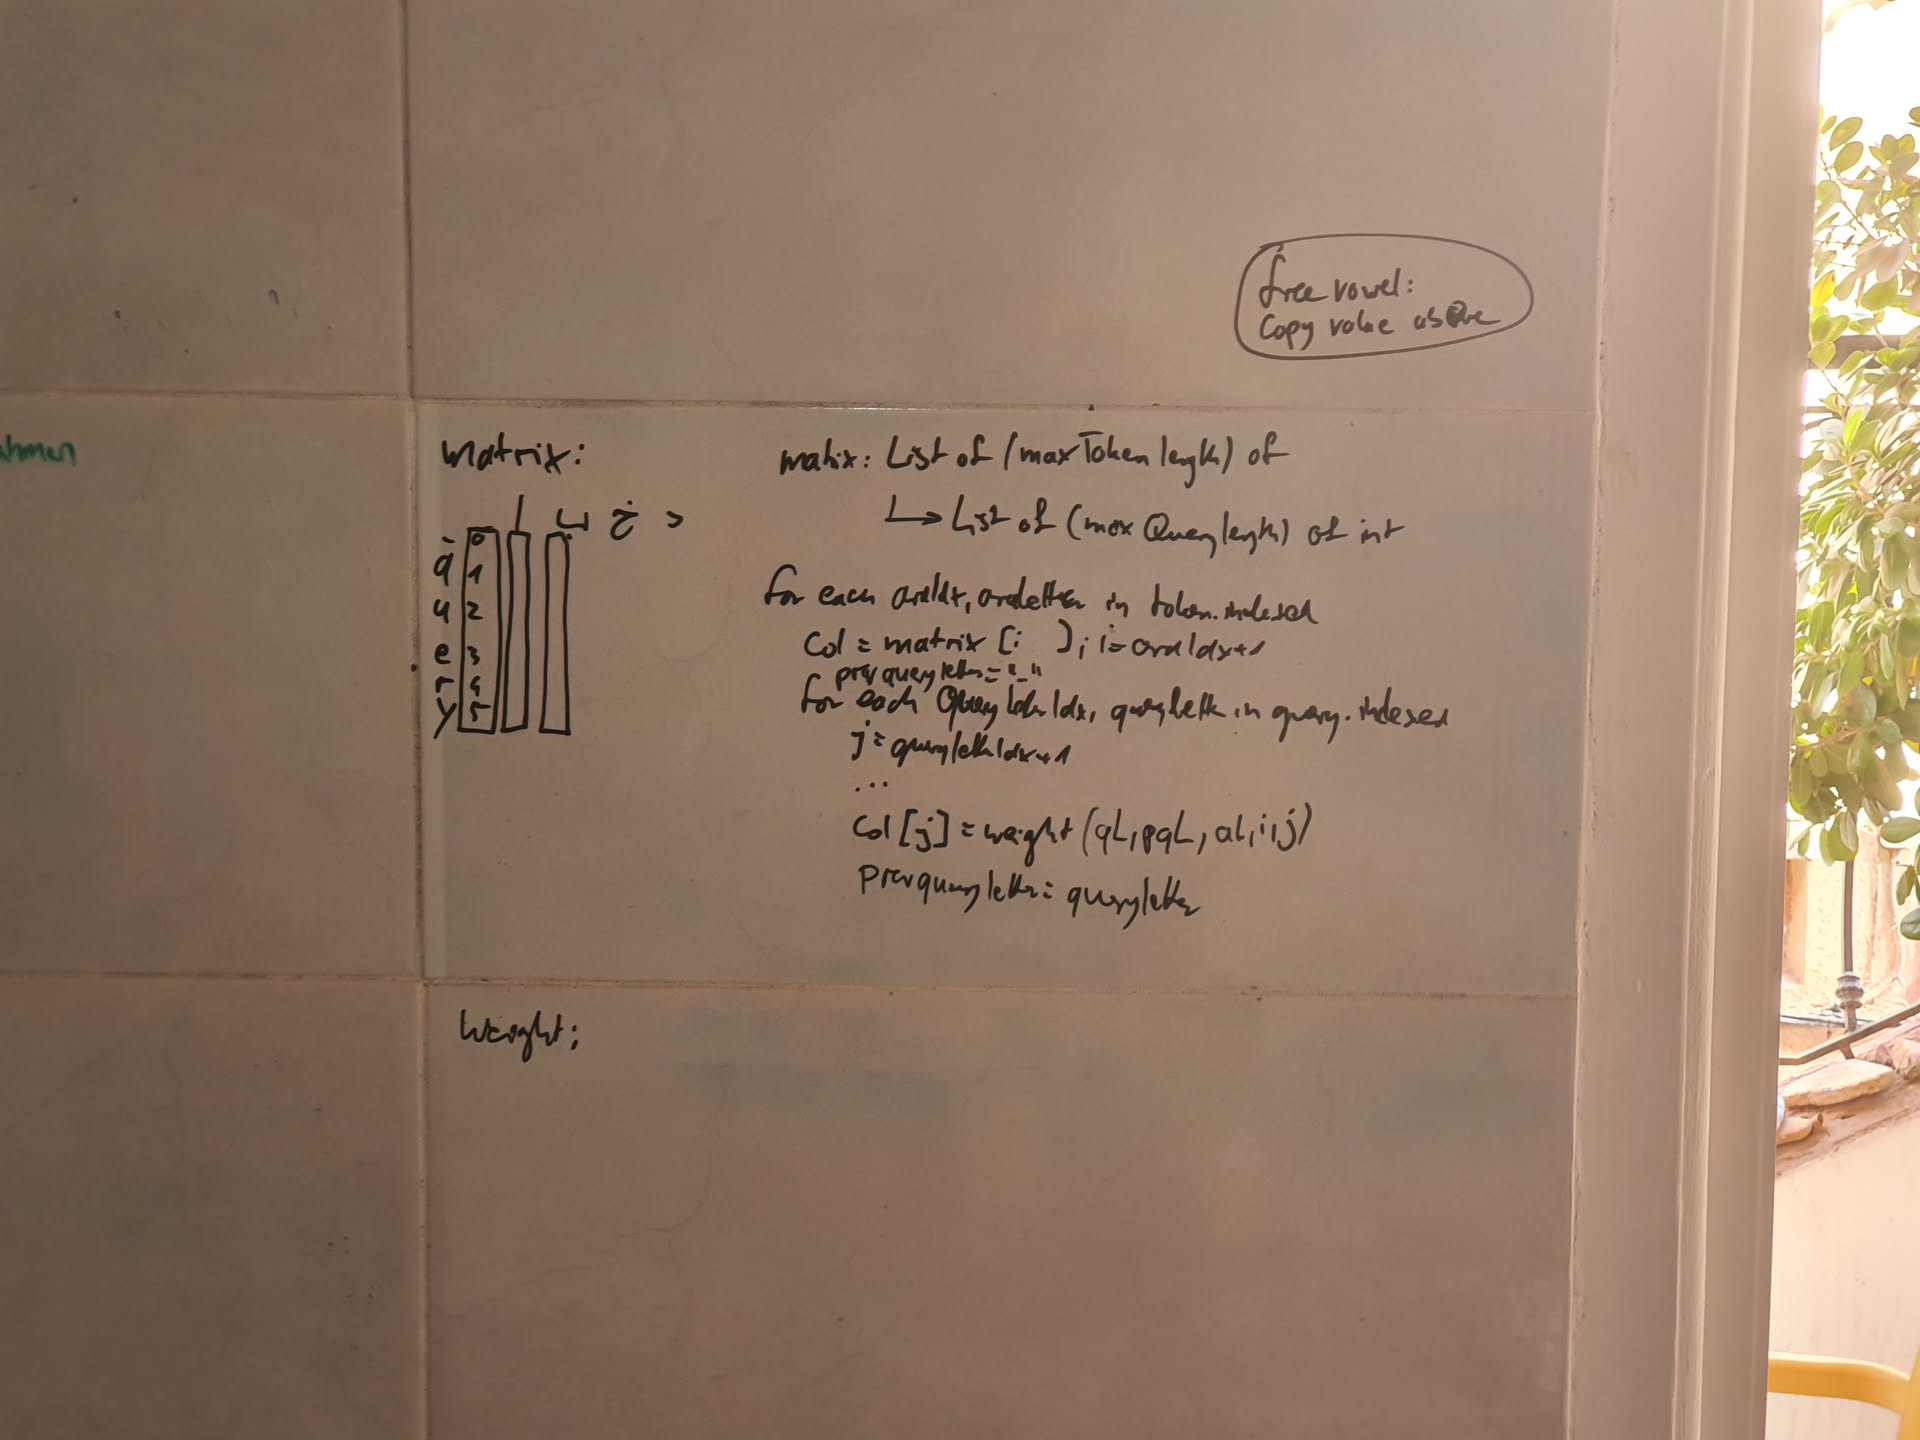 free vowel:
Copy value above
ahmen
matrix:
0
q 1
u 2
e 3
r 4
y 5
matrix: List of (maxTokenlength) of
↳ List of (maxQuerylength) of int
for each araIdx, araletter in token.indexed
Col = matrix [i ]; i=araIdx+1
prevqueryletter="_"
for each QueryletterIdx, queryletter in query.indexed
j=queryletterIdx+1
...
Col[j] = weight (qL,pqL, aL,i,j)
prevqueryletter= queryletter
Weight: